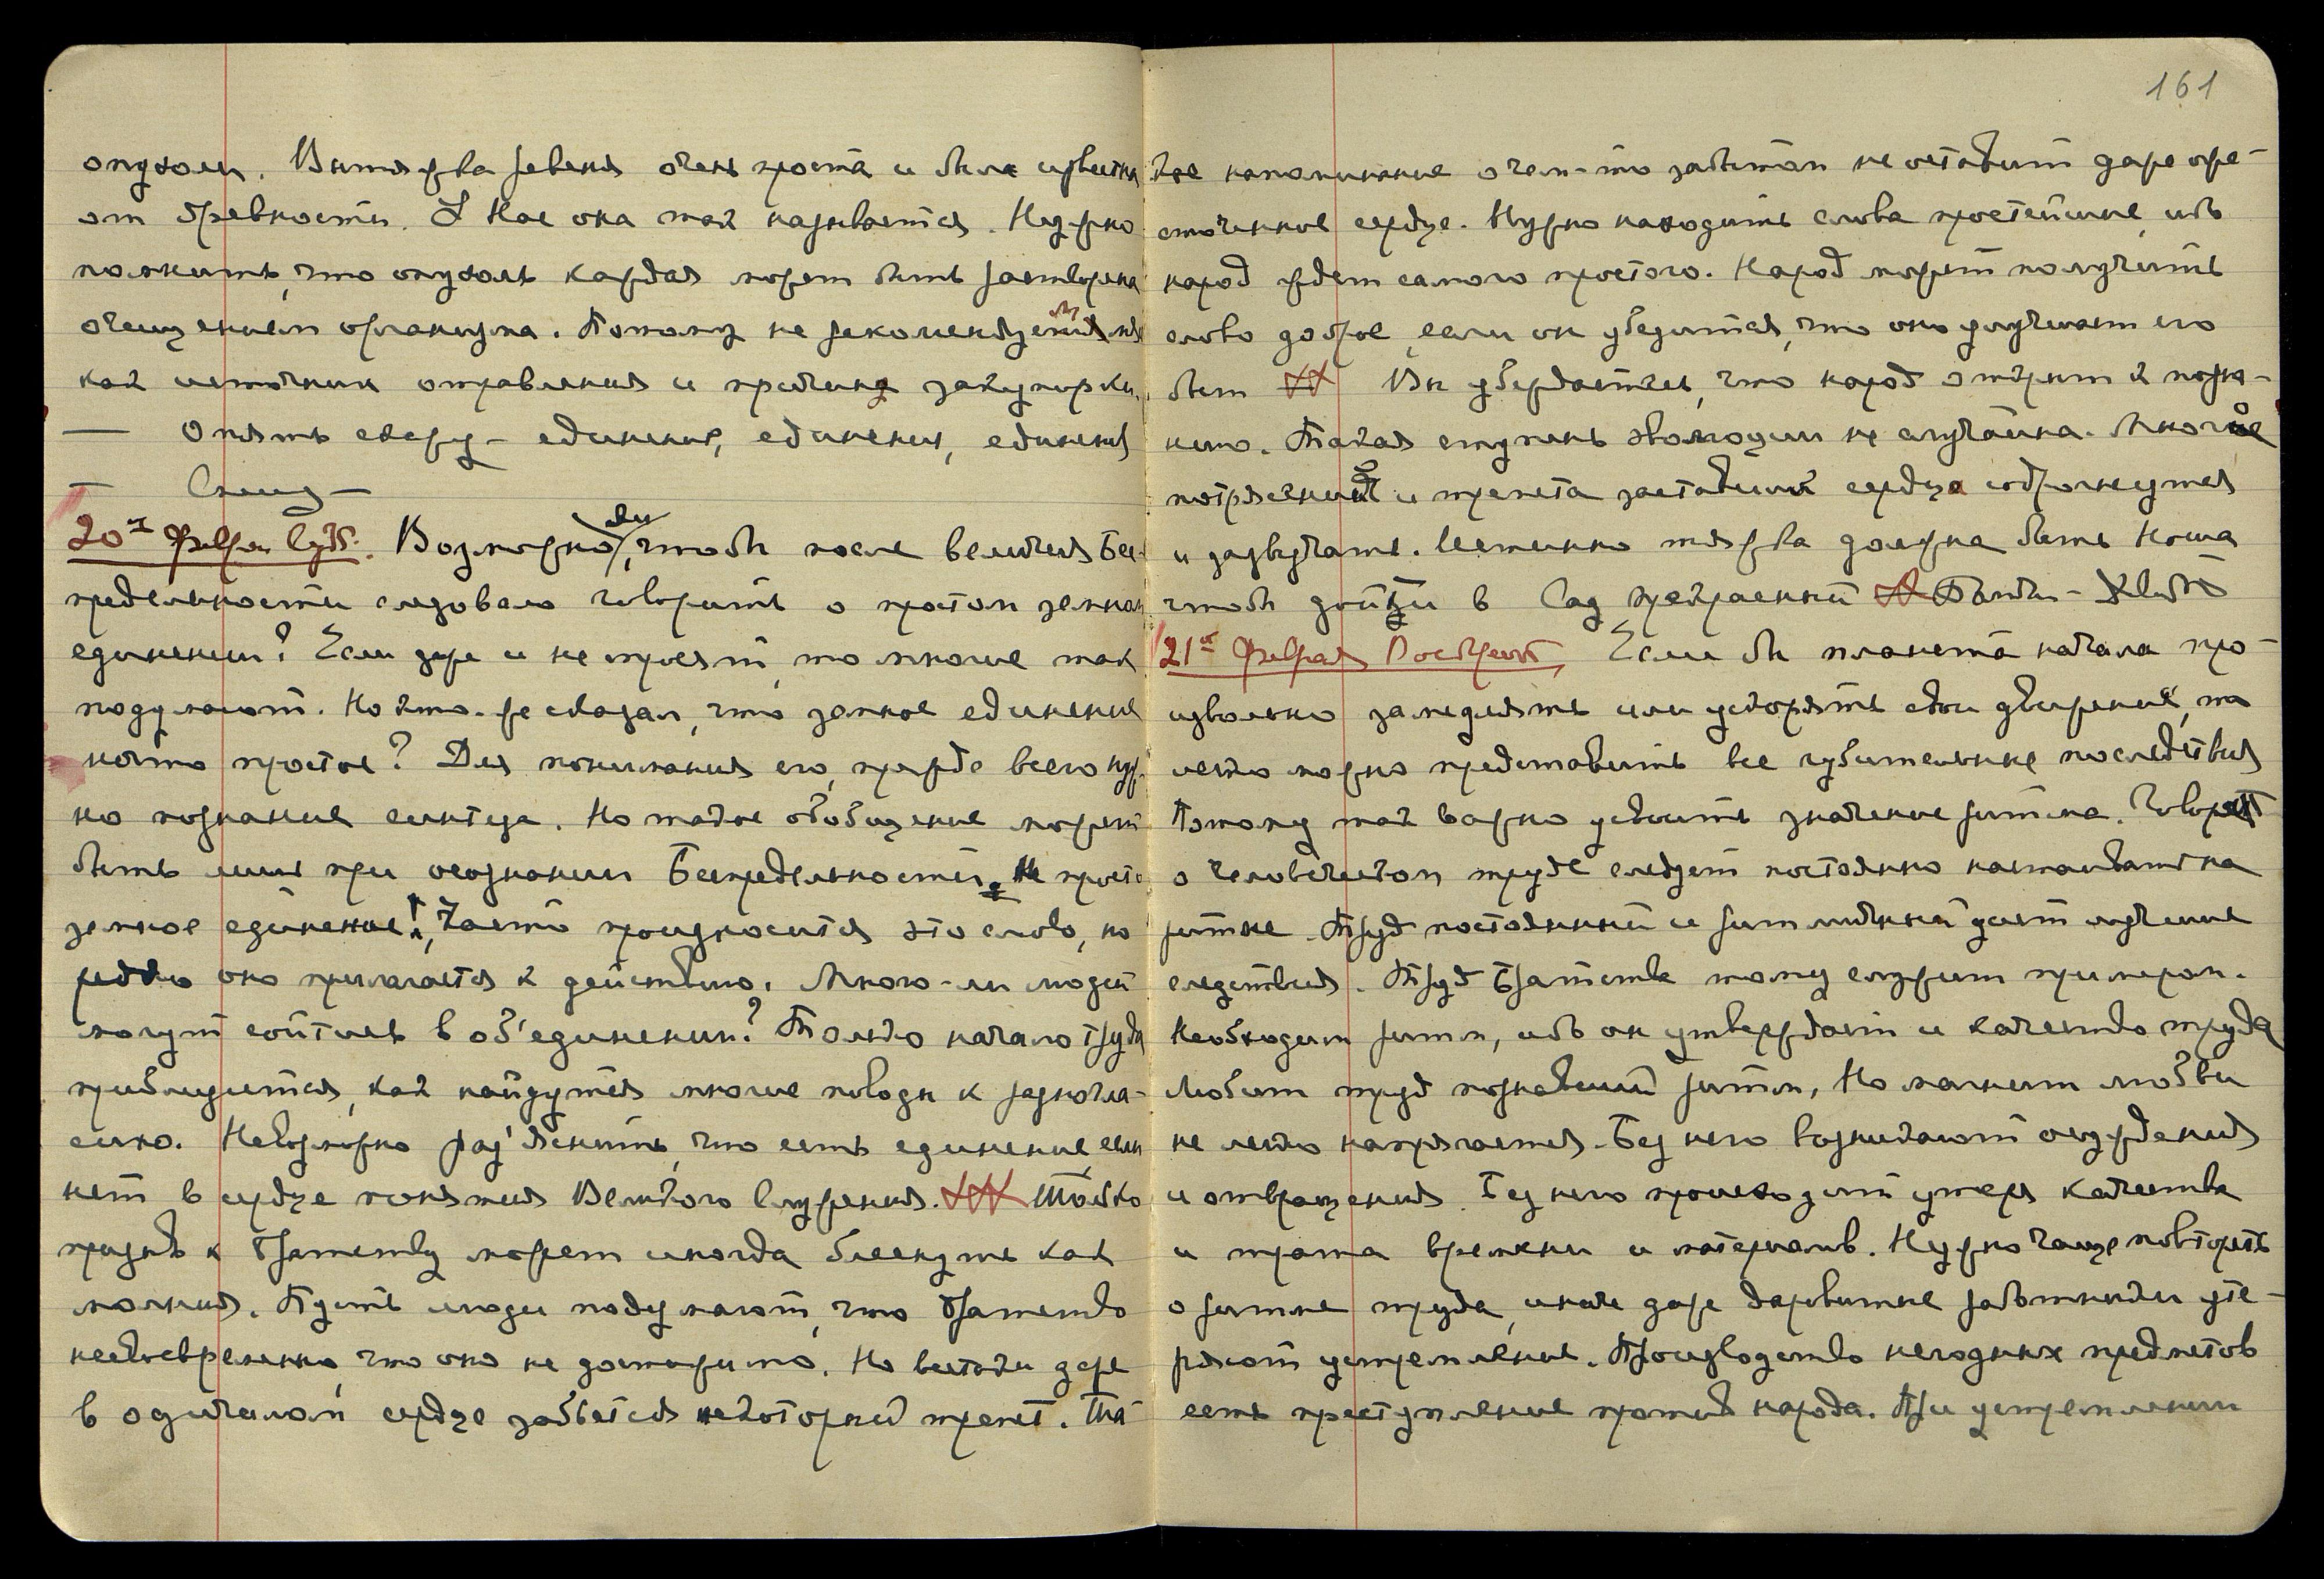 опухоли. Вытяжка ревеня очень проста и была известна
от древности. У Нас она так называется. Нужно
помнить, что опухоль каждая может быть растворена
очищением организма. Потому не рекомендуем мяса
как источник отравления и причину закупорки.
— Опять скажу – единение, единение, единение
— Спешу –
20ое Февраля Субб. Возможно ли, чтобы после величия Бес-
предельности следовало говорить о простом земном
единении? Если даже и не спросят, то многие так
подумают. Но кто-же сказал, что земное единение
нечто простое? Для понимания его, прежде всего нуж-
но познание синтеза. Но такое обобщение может
быть лишь при осознании Беспредельности. Не просто
земное единение! Часто произносится это слово, но
редко оно прилагается к действию. Много-ли людей
могут сойтись в об'единении? Только начало труда
приблизится, как найдутся многие поводы к разногла-
сию. Невозможно раз'яснить, что есть единение, если
нет в сердце понятия Великого Служения. Только
призыв к Братству может иногда блеснуть как
молния. Пусть люди подумают, что Братство
несвоевременно, что оно не достижимо. Но всетаки даже
в одичалом сердце забьется некоторый трепет. Та-
161
кое напоминание о чем-то забытом не оставит даже оже-
сточенное сердце. Нужно находить слова простейшие, ибо
народ ждет самого простого. Народ может получить
слово доброе, если он убедится, что оно улучшает его
быт Вы убеждаетесь, что народ открыт к позна-
нию. Такая ступень эволюции не случайна. Много
потрясений и трепета заставили сердца содрогнуться
и зазвучать. Истинно тяжка должна быть Ноша
чтобы дойти в Сад прекрасный
21ое Февраля Воскресен. Если бы планета начала про-
извольно замедлять или ускорять свои движения, то
легко можно представить все губительные последствия
Потому так важно усвоить значение ритма. Говоря
о человеческом труде следует постоянно настаивать на
ритме. Труд постоянный и ритмичный дает лучшие
следствия. Труд Братства тому служит примером.
Необходим ритм, ибо он утверждает и качество труда
Любит труд познавший ритм, Но магнит любви
не легко напрягается. Без него возникают осуждения
и отвращения. Без него происходит утеря качества
и трата времени и материалов. Нужно чаще повторять
о ритме труда, иначе даже даровитые работники уте-
ряют устремление. Производство негодных предметов
есть преступление против народа. При устремлении